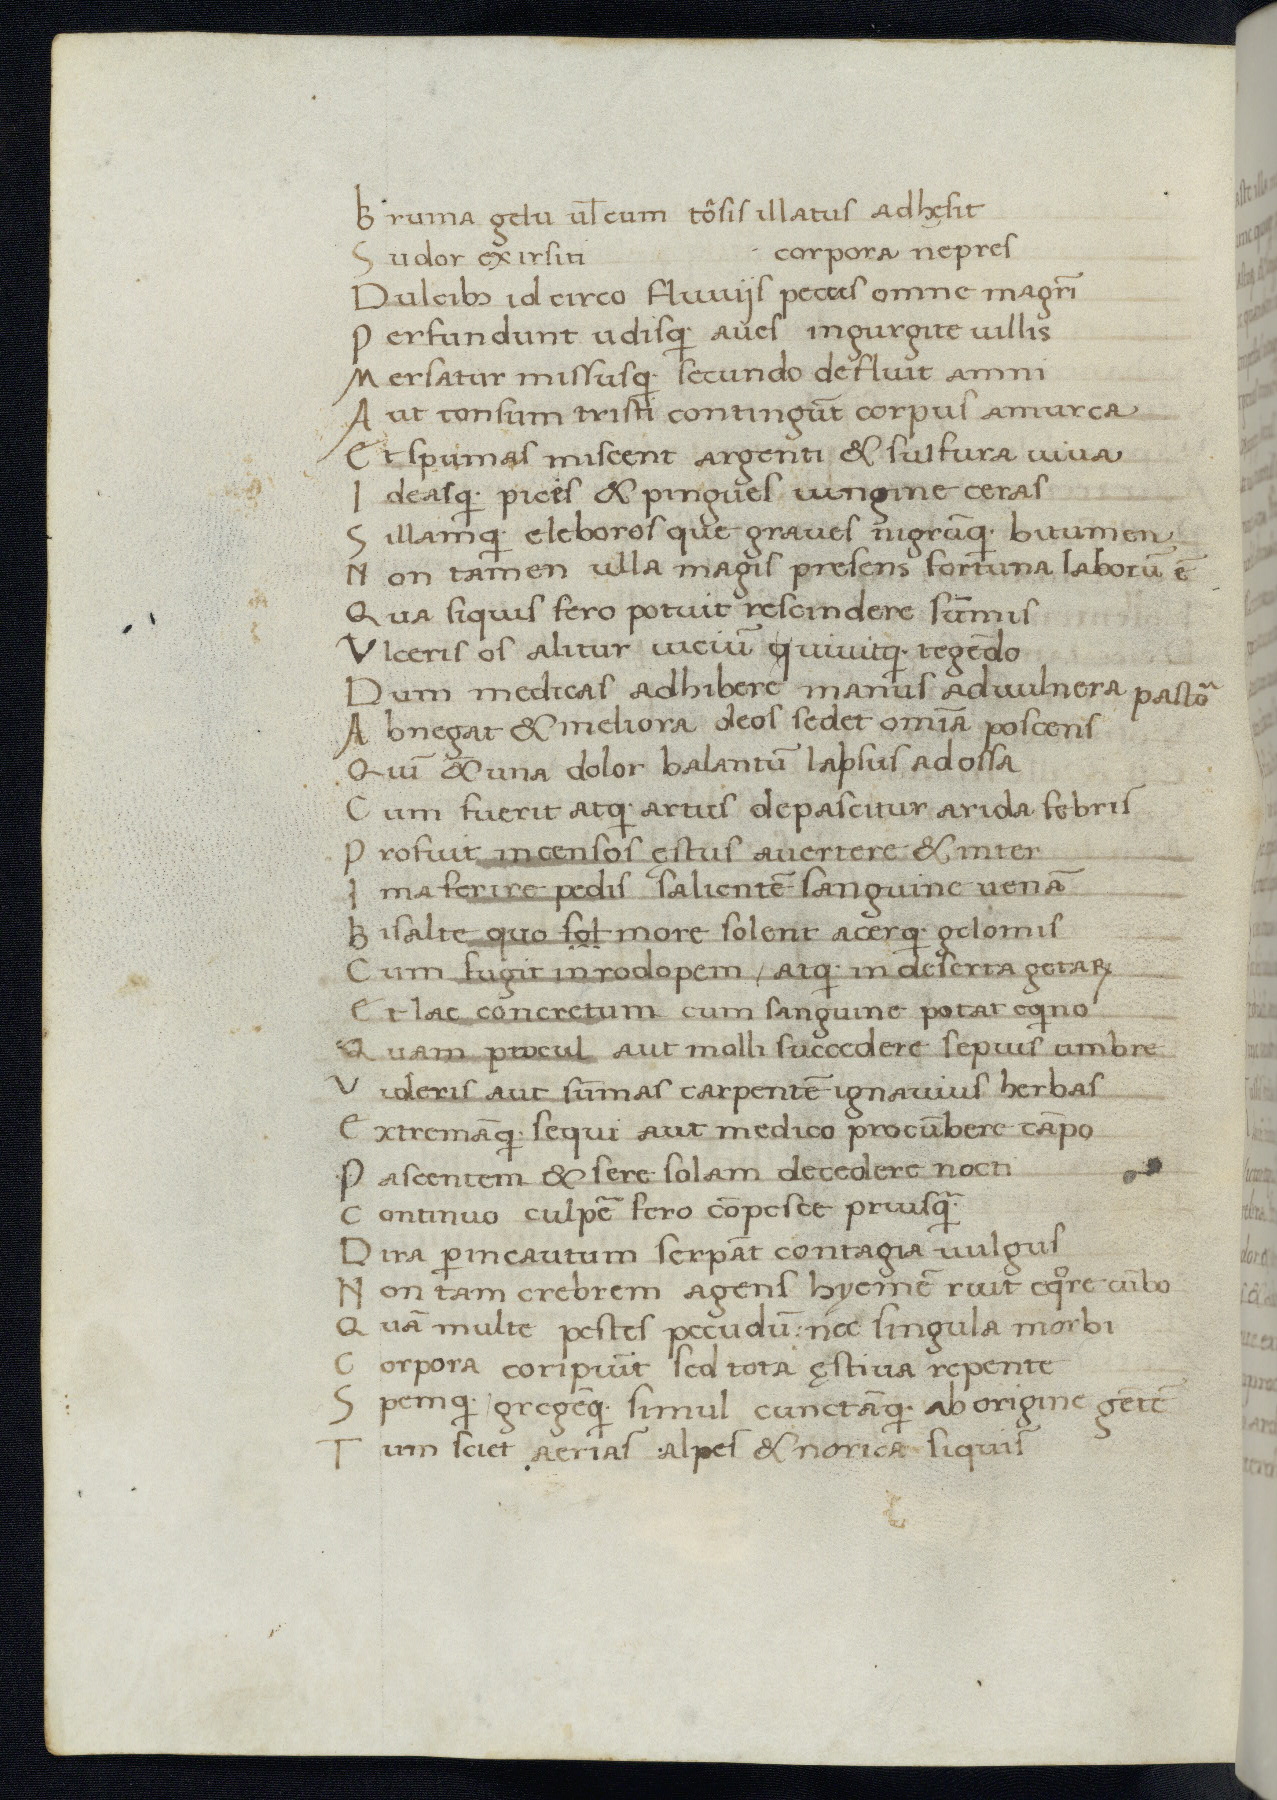 Bruma gelu ul̄ cum tõsis illatus adhęsit
Sudor exirsiti corpora nepres
Dulcibꝫ idcirco fluuijs pecus omne magr̄i
Perfundunt udisq; aues ingurgite uillis
Mersatur missusq; secundo defluit amni
Aut tonsum tristi contingūt corpus amurca
Et spumas miscent argenti & sulfura uiua
Ideasq; pices & pingues uungine ceras
Sillamq; eleboros que graues nigrūq; bitumen
Non tamen ulla magis presens fortuna laborū ē
Qua siquis fero potuit rescindere sūmis
Vlceris os alitur uiciū quiuitq; tegēdo
Dum medicas adhibere manus aduulnera pastō
Abnegat & meliora deos sedet omīa poscens
Quī & una dolor balantū lapsus adossa
Cum fuerit atq; artus depascitur arida febris
Profuit incensos ęstus auertere & inter
Ima ferire pedis salientē sanguine uenā
Bisalte quo sol more solent acerq; gelomis
Cum fugit inrodopem / atq; in deserta getaꝝ
Et lac concretum cum sanguine potat eqino
Quam procul aut molli succedere sepius umbre
Videris aut sūmas carpentē ignauius herbas
Extremāq; sequi aut medico procūbere cāpo
Pascentem & sere solam decedere nocti
Continuo culpē fero cōpesce priusq̄
Dira ꝑincautum serpāt contagia uulgus
Non tam crebrem agens hyemē ruit eqͦre uībo
Quā multe pestes pecudū: nec singula morbi
Corpora coripiūt sed tota ęstiua repente
Spemq; gregēq; simul cunctāq; ab origine gētē
Tum sciet aerias alpes & norica siquis